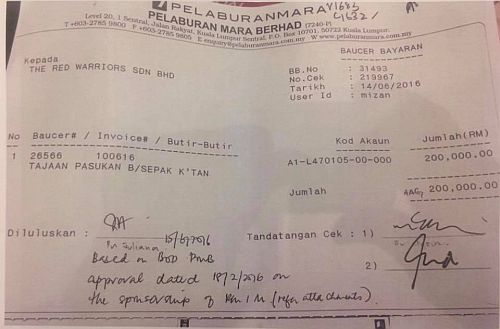 PELABURANMARA
PELABURAN MARA BERHAD (7240-P)
Level 20, 1 Sentral, Jalan Rakyat, Kuala Lumpur Sentral, P.O. Box 10701, 50722 Kuala Lumpur.
T +603-2785 9800 F +603-2785 9805 E enquiry@pelaburanmara.com.my W www.pelaburanmara.com.my
BAUCER BAYARAN
Kepada
THE RED WARRIORS SDN BHD
BB.No : 31493
No.Cek : 219967
Tarikh : 14/06/2016
User Id : mizan
No Baucer# / Invoice# / Butir-Butir Kod Akaun Jumlah(RM)
1 26566 100616 A1-L470105-00-000 200,000.00
TAJAAN PASUKAN B/SEPAK K'TAN
Jumlah 200,000.00
Diluluskan : 15/6/2016 Tandatangan Cek : 1)
2)
Based on BOD PMB
approval dated 18/2/2016 on
the sponsorship of (refer attachments).